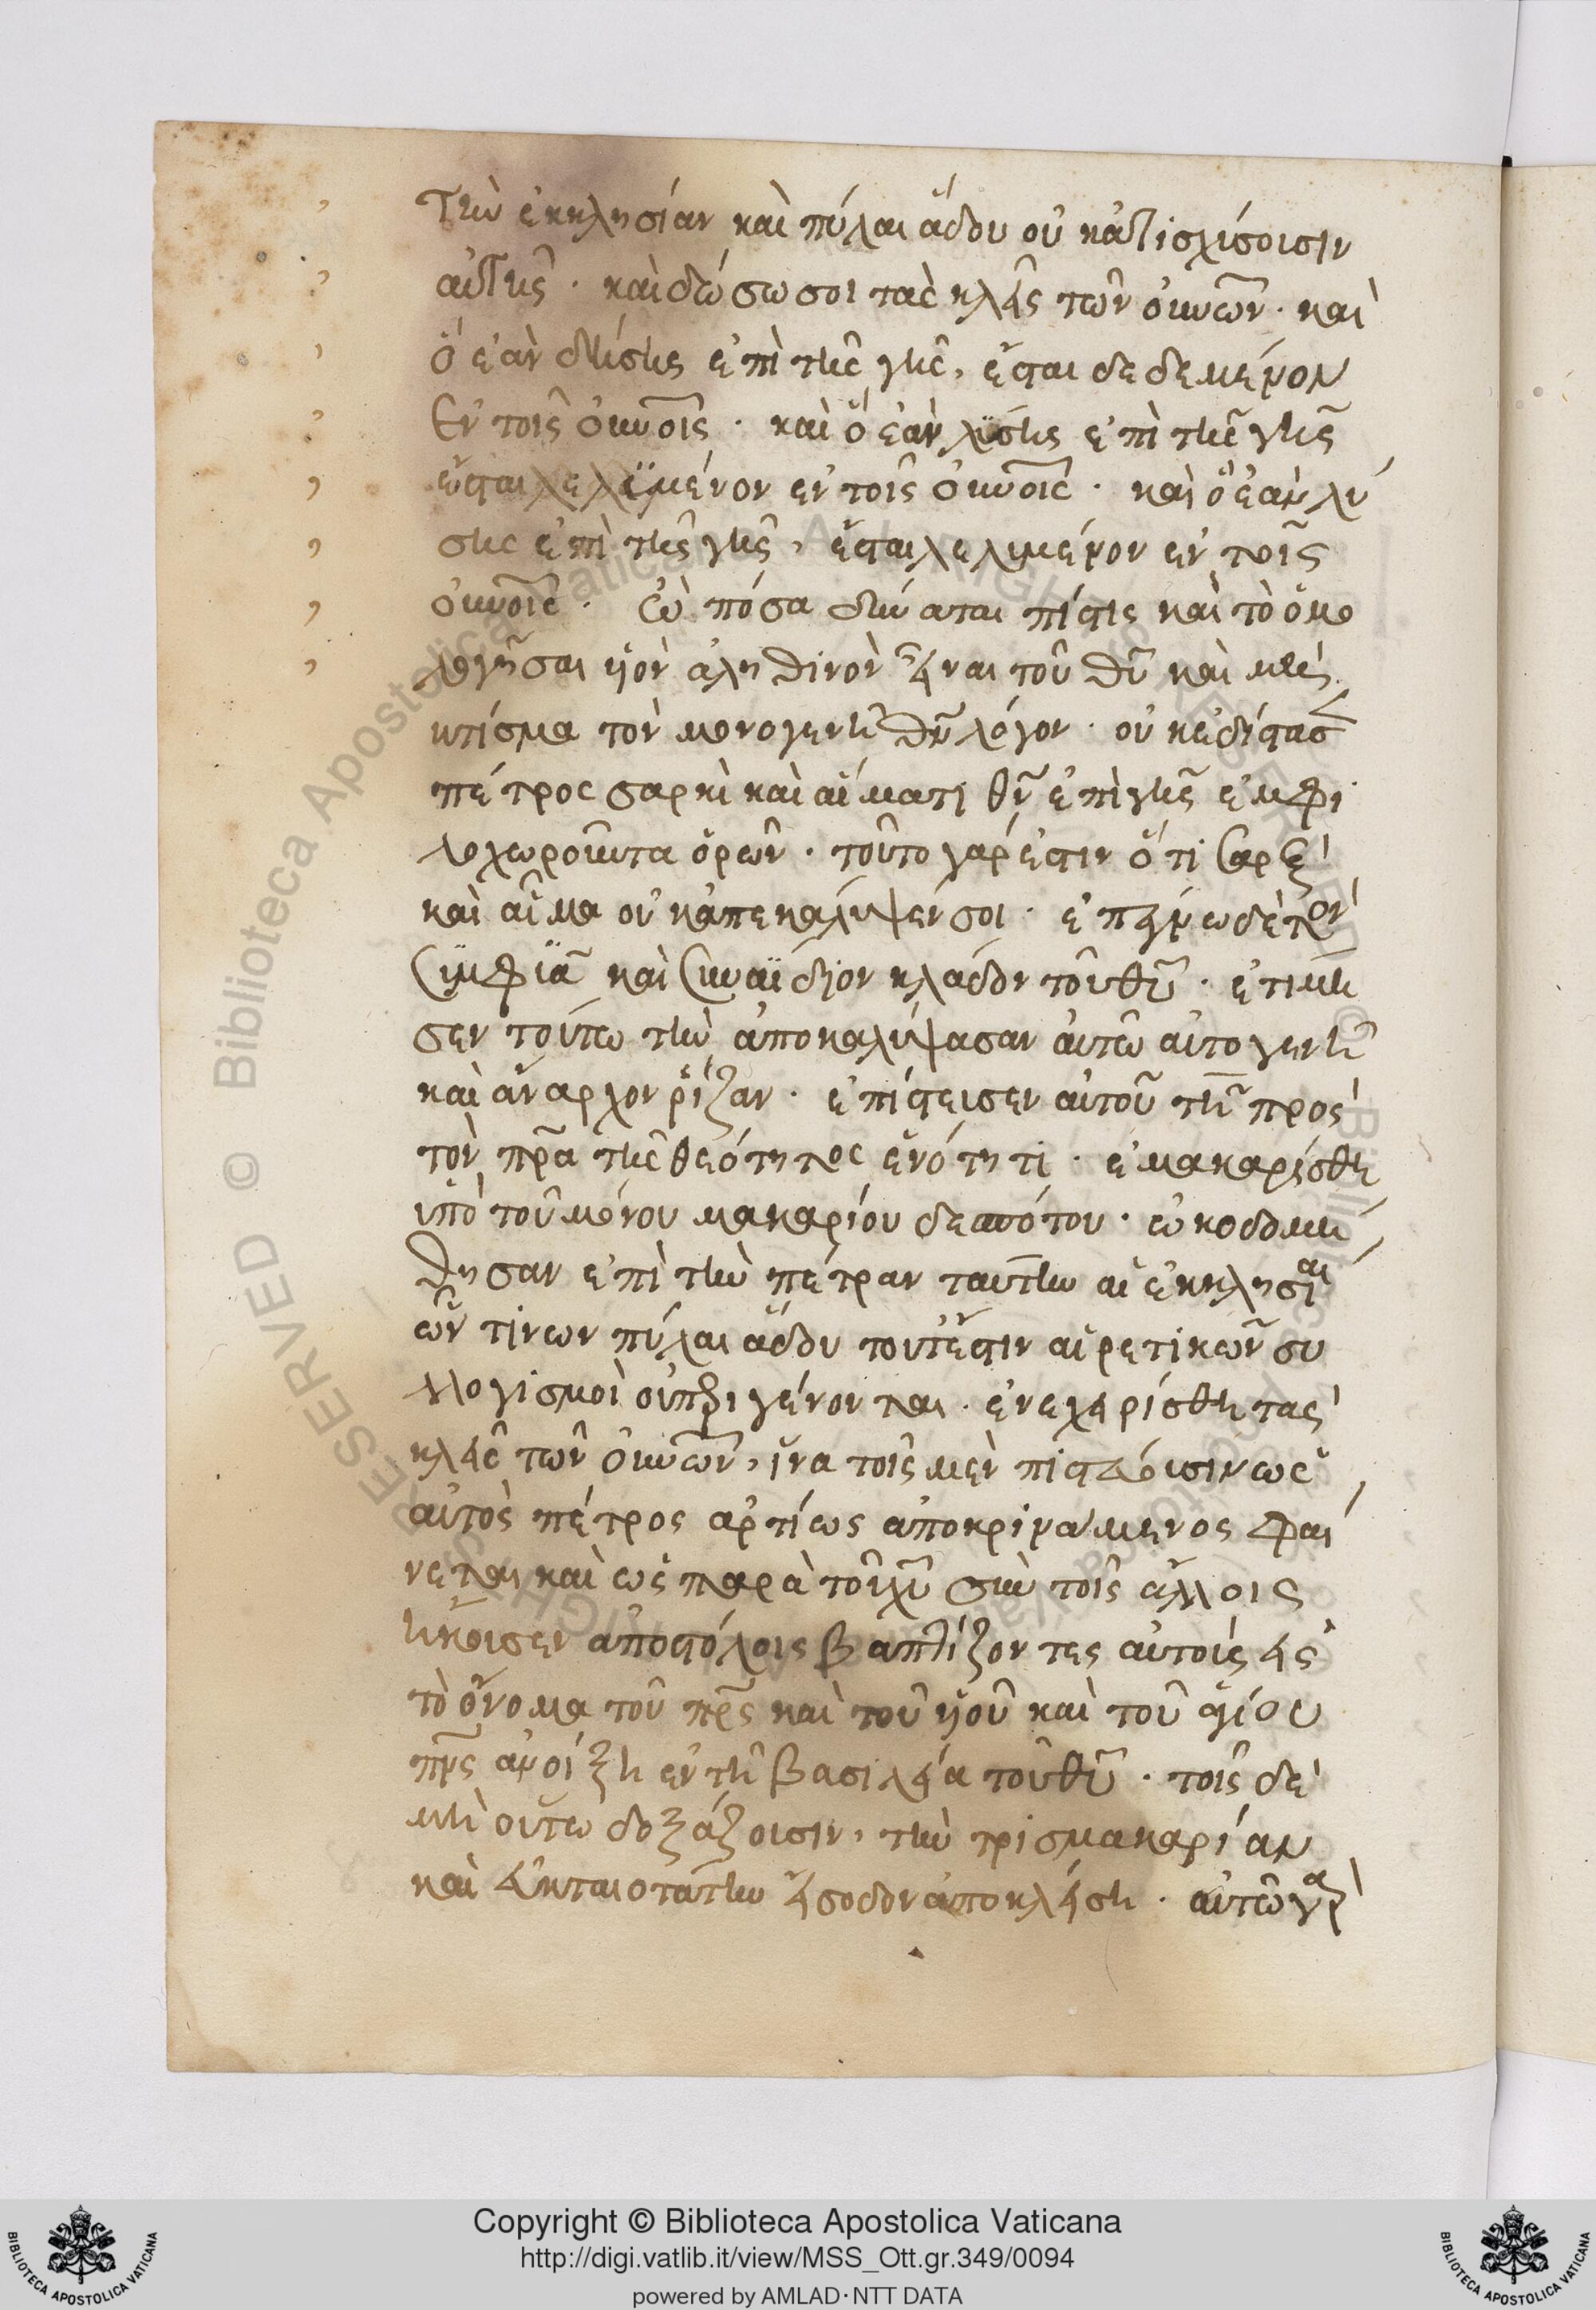 τὴν ἐκκλησίαν καὶ πύλαι ἅδου οὐ κατισχύσουσιν
αὐτῆς · καὶ δώσω σοι τὰς κλεῖς τῶν οὐνῶν · καὶ
ὃ ἐὰν δήσης ἐπὶ τῆς γῆς, ἔσται δεδεμένον
ἐν τοῖς οὐνοῖς · καὶ ὃ ἐὰν λύσης ἐπὶ τῆς γῆς
ἔσται λελϋμένον ἐν τοῖς οὐνοῖς · καὶ ὃ ἐὰν λύ
σης ἐπὶ τῆς γῆς, ἔσται λελυμένον ἐν τοῖς
οὐνοῖς · ὢ πόσα δύναται πίστις καὶ τὸ ὁμο
λογῆσαι υἱὸν ἀληθινὸν εἶναι τοῦ θυ καὶ μὴ
κτίσμα τὸν μονογενῆ θυ λόγον · οὐκ ἐδίστασ
πέτρος σαρκὶ καὶ αἵματι θν ἐπὶ γῆς ἐμφι
λοχωροῦντα ὁρῶν · τοῦτο γάρ ἐστιν ὅτι σαρξ
καὶ αἷμα οὐκ ἀπεκάλυψέν σοι · ἐπείρω δὲ τὸν
συμφυᾶ καὶ συναΐδιον κλάδον τοῦ θυ · ἐτίμη
σεν τούτω τὴν ἀποκαλύψασαν αὐτῶ αὐτογενῆ
καὶ ἄναρχον ῥίζαν · ἐπίστευσεν αὐτοῦ τῆ πρὸς
τὸν πρα τῆς θεότητος ἑνότητι · ἐμακαρίσθη
ὑπὸ τοῦ μόνου μακαρίου δεσπότου · ὠκοδομή
θησαν ἐπὶ τὴν πέτραν ταύτην αἱ ἐκκλησίαι
ὧν τινων πύλαι ἅδου τουτέστιν αἱρετικῶν συ
λλογισμοὶ οὐ περιγένονται · ἐνεχειρίσθη τὰς
κλεῖς τῶν οὐνῶν, ἵνα τοῖς μὲν πιστεύουσιν ὡς
αὐτὸς πέτρος ἀρτίως ἀποκρινάμενος φαί
νεται καὶ ὡς παρὰ τοῦ χυ σὺν τοῖς ἄλλοις
ἤκουσεν ἀποστόλοις βαπτίζοντες αὐτοὺς εἰς
τὸ ὄνομα τοῦ πρς καὶ τοῦ υἱοῦ καὶ τοῦ ἁγίου
πνς ἀνοίξη ἐν τῆ βασιλεία τοῦ θυ · τοῖς δὲ
μὴ οὕτω δοξάζουσιν, τὴν τρισμακαρίαν
καὶ εὐκταιοτάτην εἴσοδον ἀποκλείση · αὐτῶ γὰρ